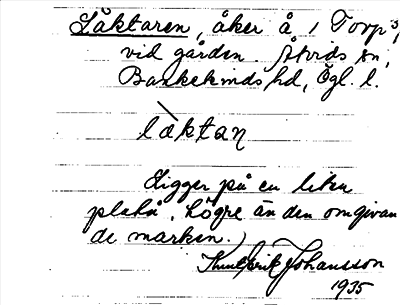 Läktaren, åker å 1 Torp³,
vid gården. Åtvids sn,
Bankekinds hd, Ögl. l.
lὰktan
Ligger på en liten
platå, högre än den omgivan
de marken.
Knut Erik Johansson
1935